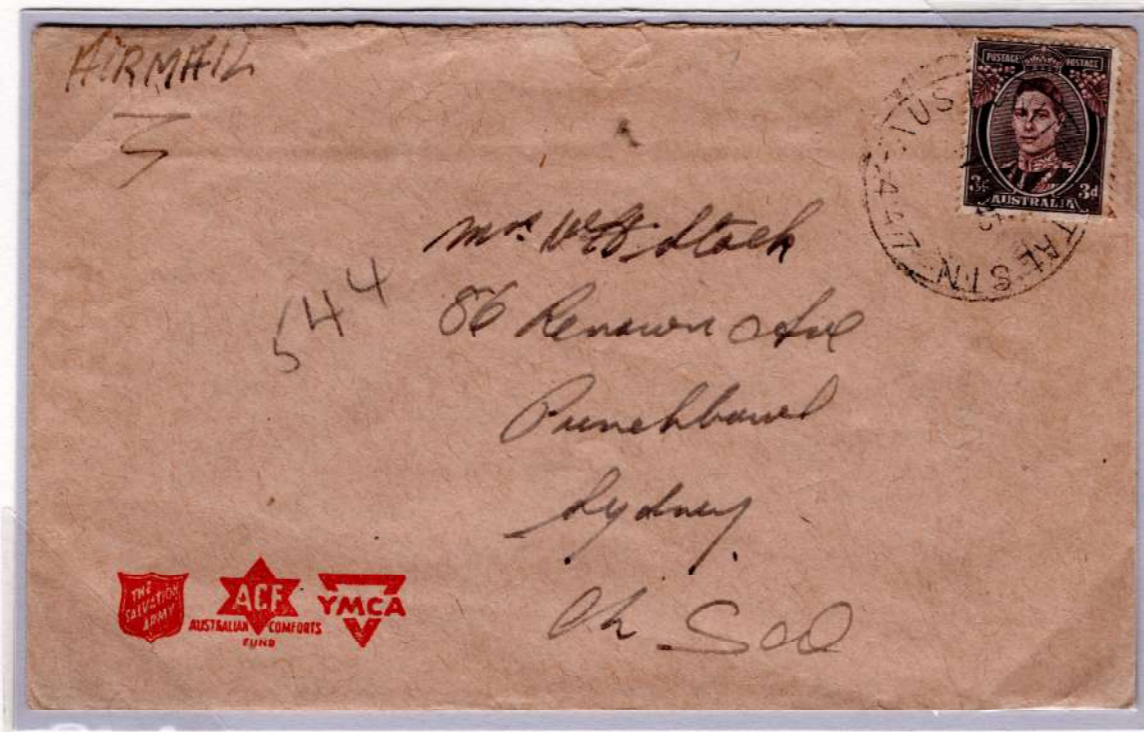 AIRMAIL
POSTAGE POSTAGE
3d 3d
AUSTRALIA
Mrs W. Stack
86 Renown Ave
544
Punchbowl
Sydney
THE
SALVATION
ARMY
ACF
AUSTRALIAN COMFORTS
FUND
YMCA